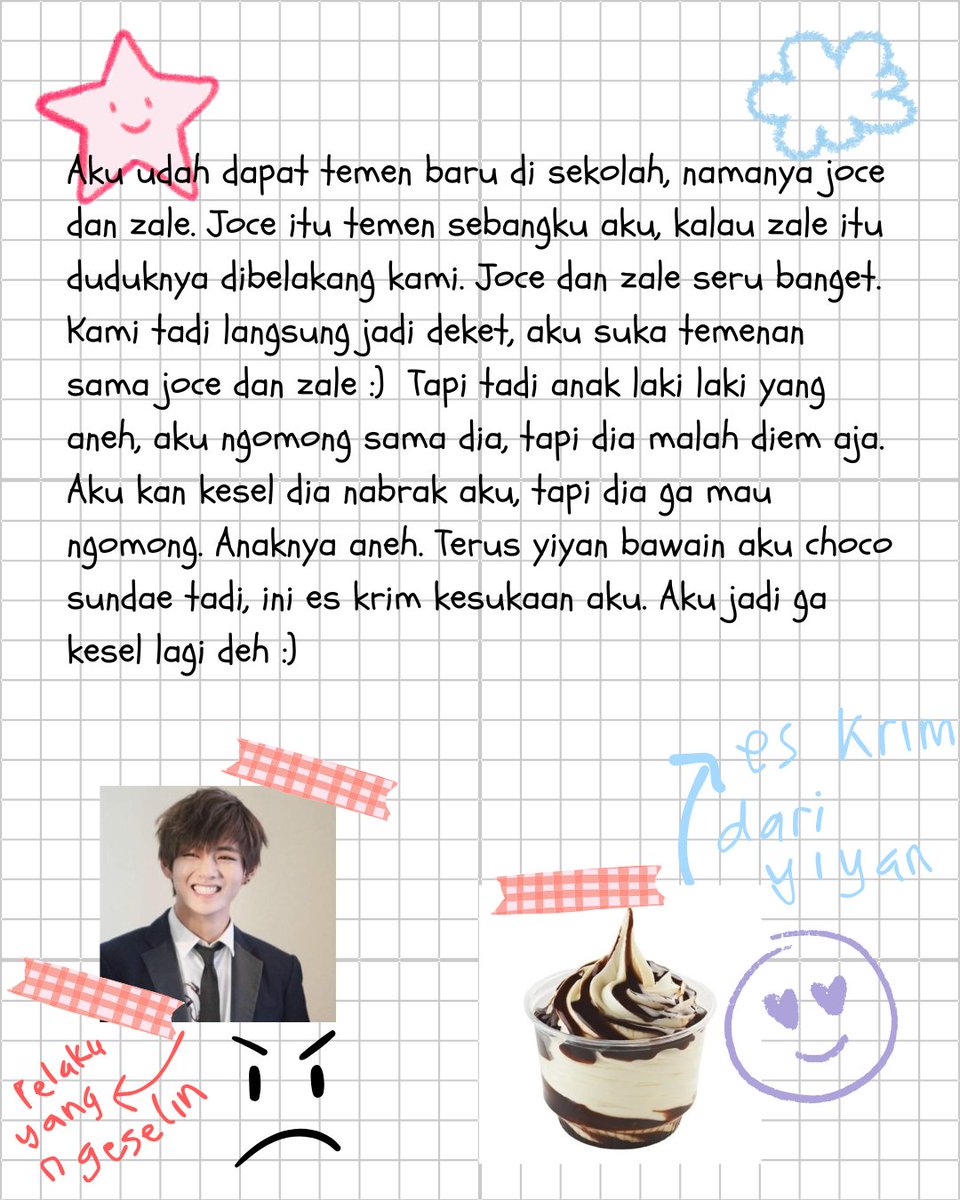 Aku udah dapat temen baru di sekolah, namanya joce
dan zale. Joce itu temen sebangku aku, kalau zale itu
duduknya dibelakang kami. Joce dan zale seru banget.
Kami tadi langsung jadi deket, aku suka temenan
sama joce dan zale :) Tapi tadi anak laki laki yang
aneh, aku ngomong sama dia, tapi dia malah diem aja.
Aku kan kesel dia nabrak aku, tapi dia ga mau
ngomong. Anaknya aneh. Terus yiyan bawain aku choco
sundae tadi, ini es krim kesukaan aku. Aku jadi ga
kesel lagi deh :)
es krim
dari
yiyan
Pelaku
yang
ngeselin